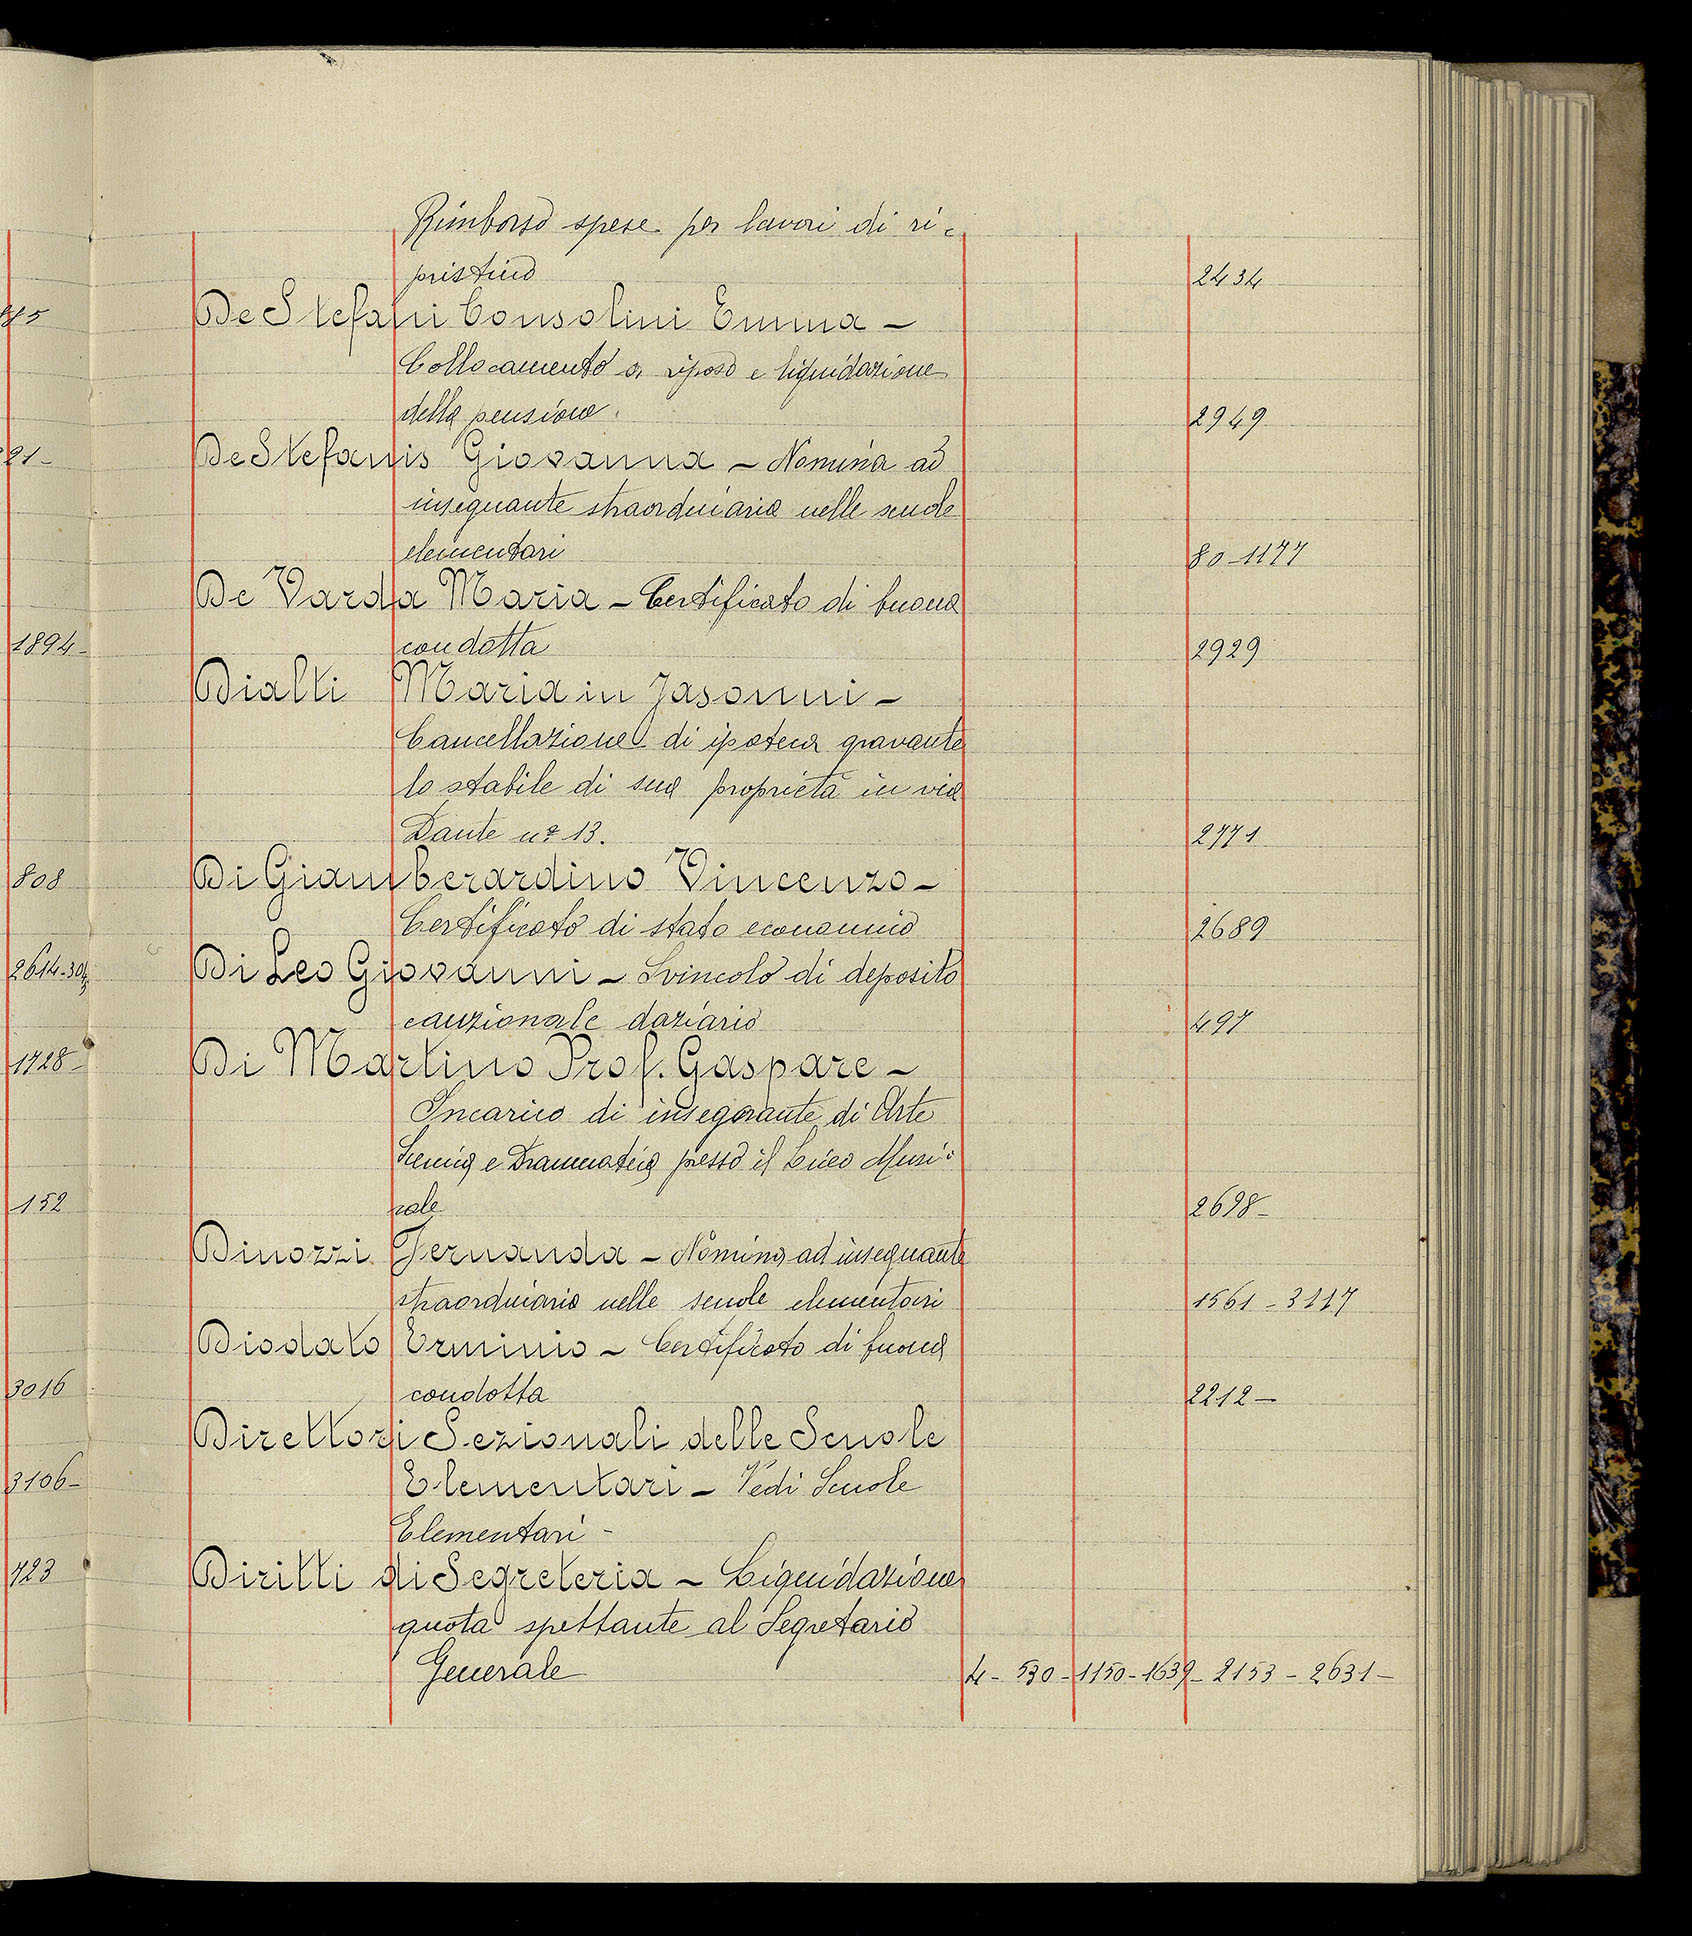 Rimborso spese per lavori di ri=
pristino 2434
885
De Stefani Consolini Emma -
Collocamento a riposo e liquidazione
della pensione. 2949
21-
De Stefanis Giovanna - Nomina ad
insegnante straordinaria nelle scuole
elementari 80-1177
De Varda Maria - Certificato di buona
1894-
condotta 2929
Dialti Maria in Jasonni -
Cancellazione di ipoteca gravante
lo stabile di sua proprietà in via
Dante nº 13. 2771
808
Di Giamberardino Vincenzo -
Certificato di stato economico 2689
2614-304
Di Leo Giovanni - Svincolo di deposito
cauzionale daziario 497
1728-
Di Martino Prof. Gaspare -
Incarico di insegnante di Arte
Scenica e Drammatica presso il Liceo Musi=
152
cale 2698-
Dinozzi Fernanda - Nomina ad insegnante
straordinaria nelle scuole elementari 1561-3117
Diodato Erminio - Certificato di buona
3016
condotta 2212-
Direttori Sezionali delle Scuole
3106-
Elementari - Vedi Scuole
Elementari -
723
Diritti di Segreteria - Liquidazione
quota spettante al Segretario
Generale 4-530-1150-1639-2153-2631-